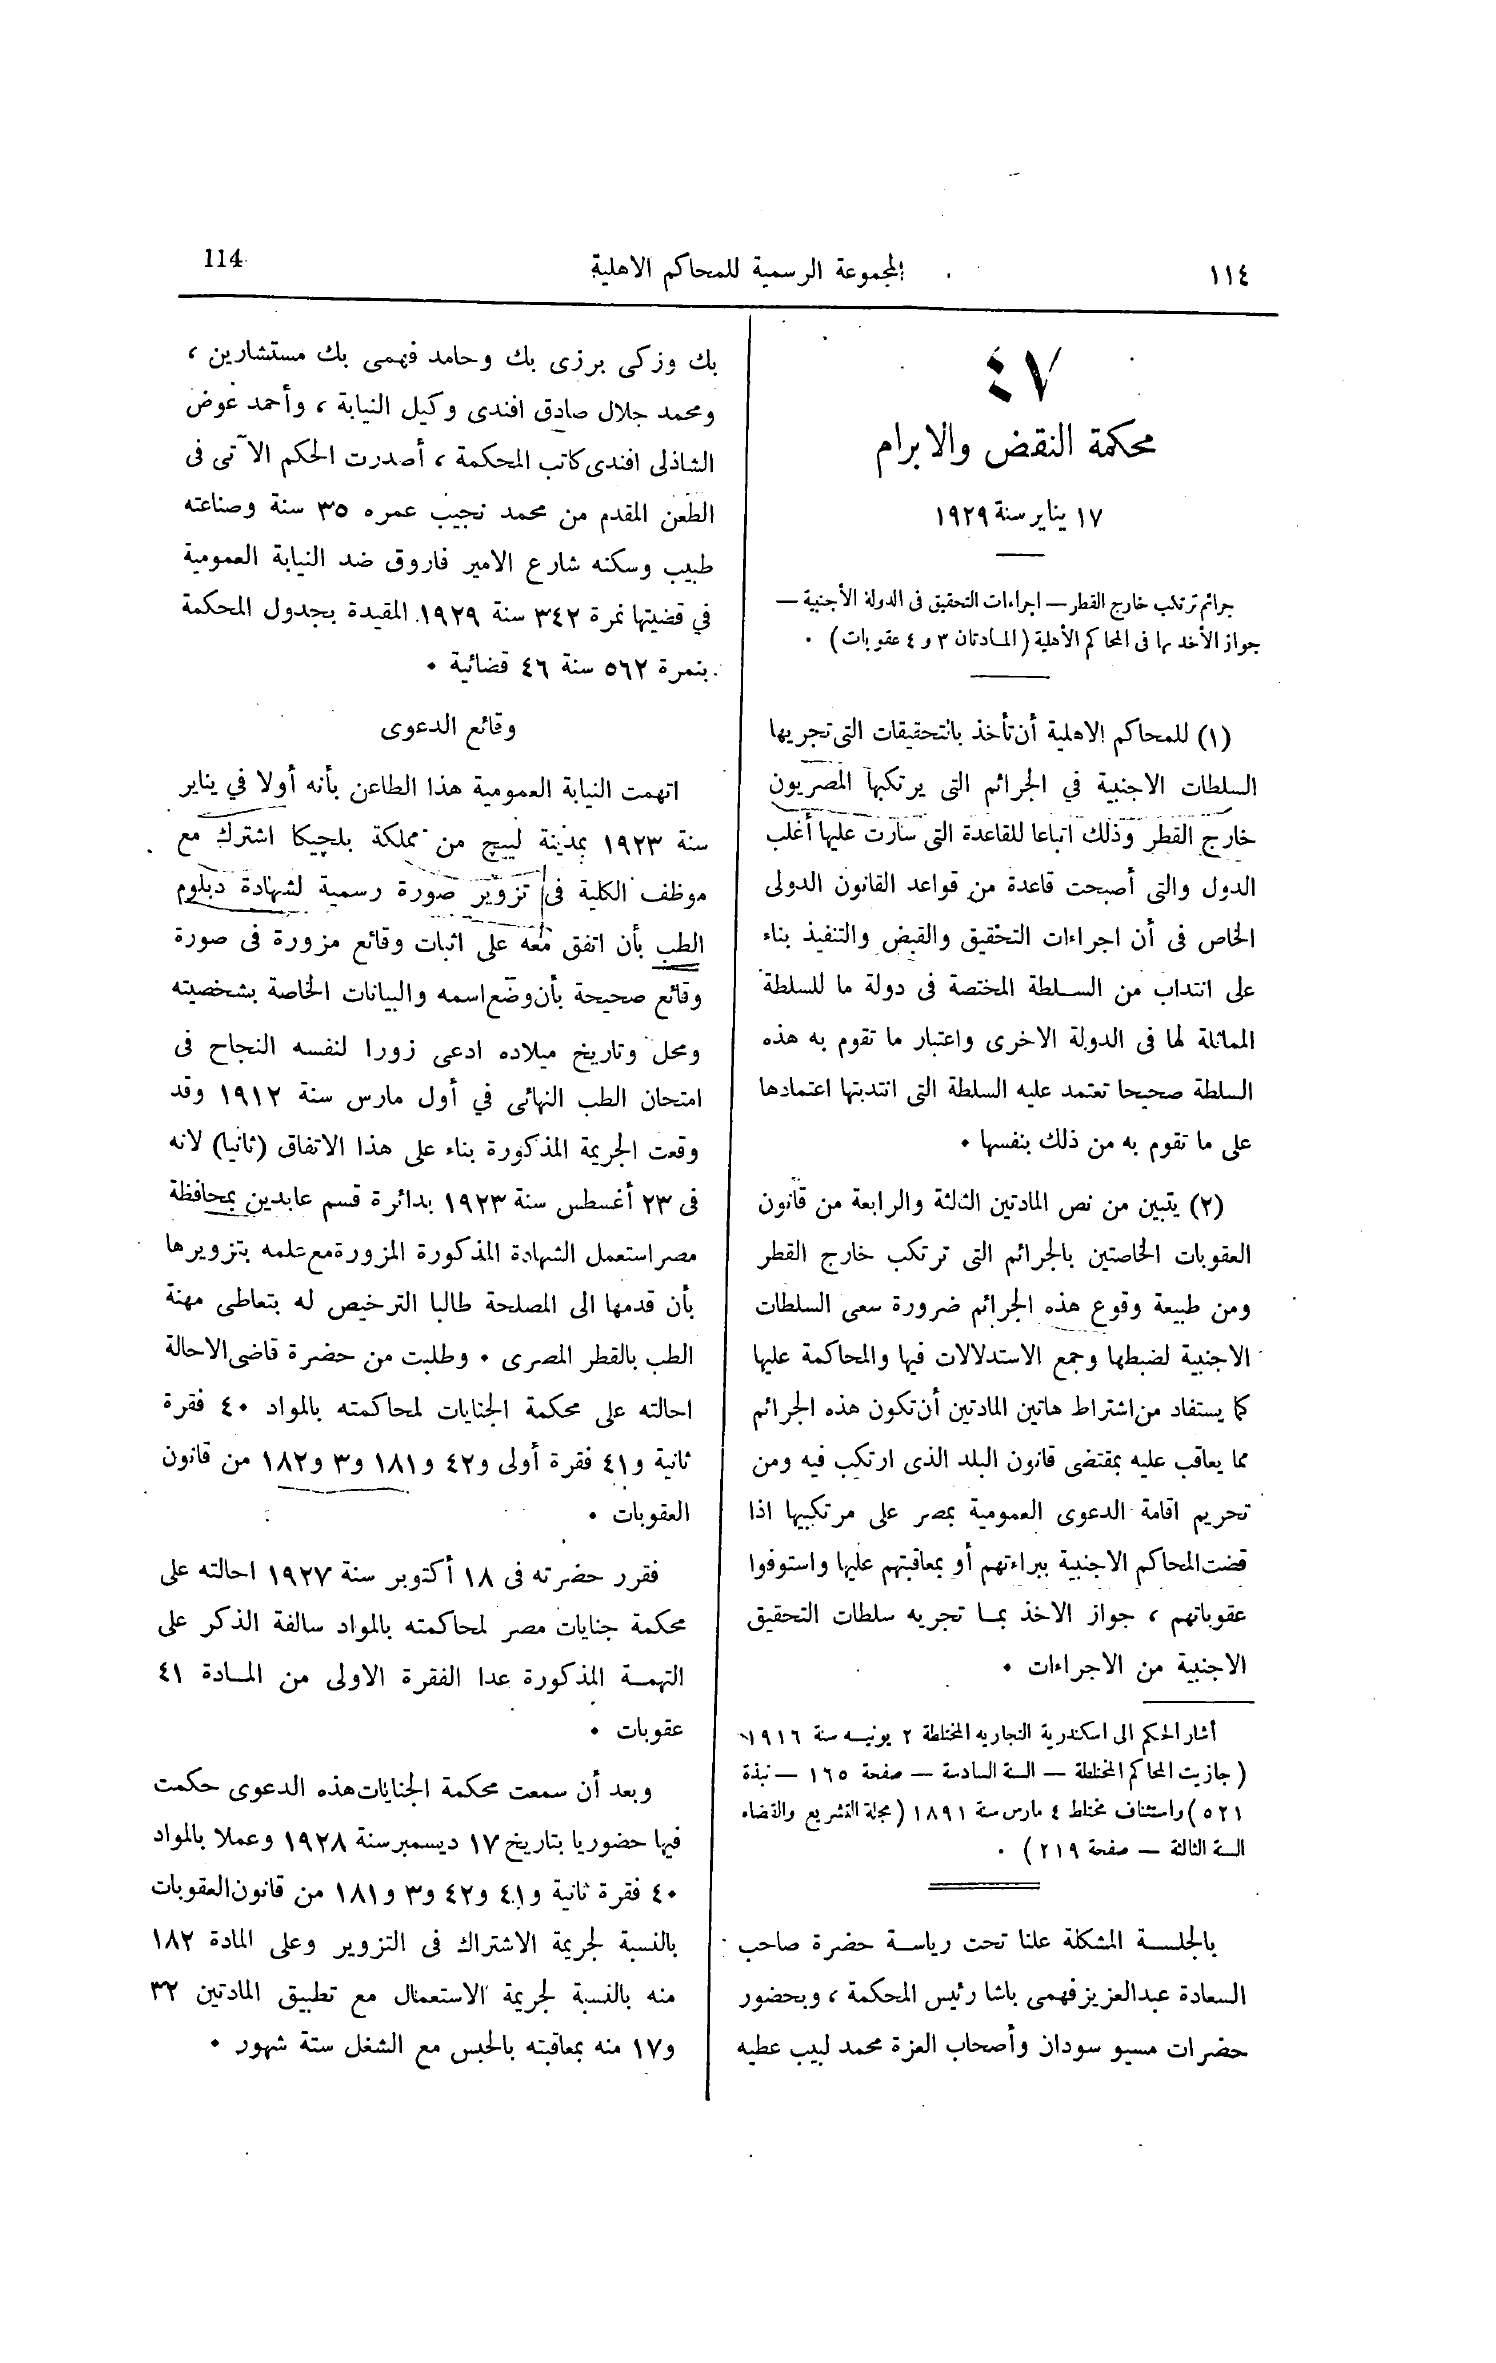 ١١٤
المجموعة الرسمية للمحاكم الاهلية
114
٤٧
محكمة النقض والابرام
١٧ يناير سنة ١٩٢٩
جرائم ترتكب خارج القطر – اجراءات التحقيق فى الدولة الأجنبية –
جواز الأخذ بها فى المحاكم الأهلية (المادتان ٣ و ٤ عقوبات) .
(١) للمحاكم الاهلية أن تأخذ بالتحقيقات التى تجريها
السلطات الاجنبية في الجرائم التى يرتكبها المصريون
خارج القطر وذلك اتباعا للقاعدة التى سارت عليها أغلب
الدول والتى أصبحت قاعدة من قواعد القانون الدولى
الخاص فى أن اجراءات التحقيق والقبض والتنفيذ بناء
على انتداب من السلطة المختصة فى دولة ما للسلطة
المماثلة لها فى الدولة الاخرى واعتبار ما تقوم به هذه
السلطة صحيحا تعتمد عليه السلطة التى انتدبتها اعتمادها
على ما تقوم به من ذلك بنفسها .
(٢) يتبين من نص المادتين الثالثة والرابعة من قانون
العقوبات الخاصتين بالجرائم التى ترتكب خارج القطر
ومن طبيعة وقوع هذه الجرائم ضرورة سعى السلطات
الاجنبية لضبطها وجمع الاستدلالات فيها والمحاكمة عليها
كما يستفاد من اشتراط هاتين المادتين أن تكون هذه الجرائم
مما يعاقب عليه بمقتضى قانون البلد الذى ارتكب فيه ومن
تحريم اقامة الدعوى العمومية بمصر على مرتكبيها اذا
قضت المحاكم الاجنبية ببراءتهم أو بمعاقبتهم عليها واستوفوا
عقوباتهم ، جواز الاخذ بما تجريه سلطات التحقيق
الاجنبية من الاجراءات .
أشار الحكم الى اسكندرية التجاريه المختلطة ٢ يونيه سنة ١٩١٦
(جازيت المحاكم المختلطة – السنة السادسة – صفحة ١٦٥ – نبذة
٥٢١) واستئناف مختلط ٤ مارس سنة ١٨٩١ (مجلة التشريع والقضاء
السنة الثالثة – صفحة ٢١٩) .
بالجلسة المشكلة علنا تحت رياسة حضرة صاحب
السعادة عبد العزيز فهمى باشا رئيس المحكمة ، وبحضور
حضرات مسيو سودان وأصحاب العزة محمد لبيب عطيه
بك وزكى برزى بك وحامد فهمى بك مستشارين ،
ومحمد جلال صادق افندى وكيل النيابة ، وأحمد عوض
الشاذلى افندى كاتب المحكمة ، أصدرت الحكم الآتى فى
الطعن المقدم من محمد نجيب عمره ٣٥ سنة وصناعته
طبيب وسكنه شارع الامير فاروق ضد النيابة العمومية
في قضيتها نمرة ٣٤٢ سنة ١٩٢٩ المقيدة بجدول المحكمة
بنمرة ٥٦٢ سنة ٤٦ قضائية .
وقائع الدعوى
اتهمت النيابة العمومية هذا الطاعن بأنه أولا في يناير
سنة ١٩٢٣ بمدينة لييچ من مملكة بلچيكا اشترك مع
موظف الكلية فى تزوير صورة رسمية لشهادة دبلوم
الطب بأن اتفق معه على اثبات وقائع مزورة فى صورة
وقائع صحيحة بأن وضع اسمه والبيانات الخاصة بشخصيته
ومحل وتاريخ ميلاده ادعى زورا لنفسه النجاح فى
امتحان الطب النهائى في أول مارس سنة ١٩١٢ وقد
وقعت الجريمة المذكورة بناء على هذا الاتفاق (ثانيا) لانه
فى ٢٣ أغسطس سنة ١٩٢٣ بدائرة قسم عابدين بمحافظة
مصر استعمل الشهادة المذكورة المزورة مع علمه بتزويرها
بأن قدمها الى المصلحة طالبا الترخيص له بتعاطى مهنة
الطب بالقطر المصرى . وطلبت من حضرة قاضى الاحالة
احالته على محكمة الجنايات لمحاكمته بالمواد ٤٠ فقرة
ثانية و٤١ فقرة أولى و٤٢ و١٨١ و٣ و١٨٢ من قانون
العقوبات .
فقرر حضرته فى ١٨ أكتوبر سنة ١٩٢٧ احالته على
محكمة جنايات مصر لمحاكمته بالمواد سالفة الذكر على
التهمة المذكورة عدا الفقرة الاولى من المادة ٤١
عقوبات .
وبعد أن سمعت محكمة الجنايات هذه الدعوى حكمت
فيها حضوريا بتاريخ ١٧ ديسمبر سنة ١٩٢٨ وعملا بالمواد
٤٠ فقرة ثانية و٤١ و٤٢ و٣ و١٨١ من قانون العقوبات
بالنسبة لجريمة الاشتراك فى التزوير وعلى المادة ١٨٢
منه بالنسبة لجريمة الاستعمال مع تطبيق المادتين ٣٢
و١٧ منه بمعاقبته بالحبس مع الشغل ستة شهور .